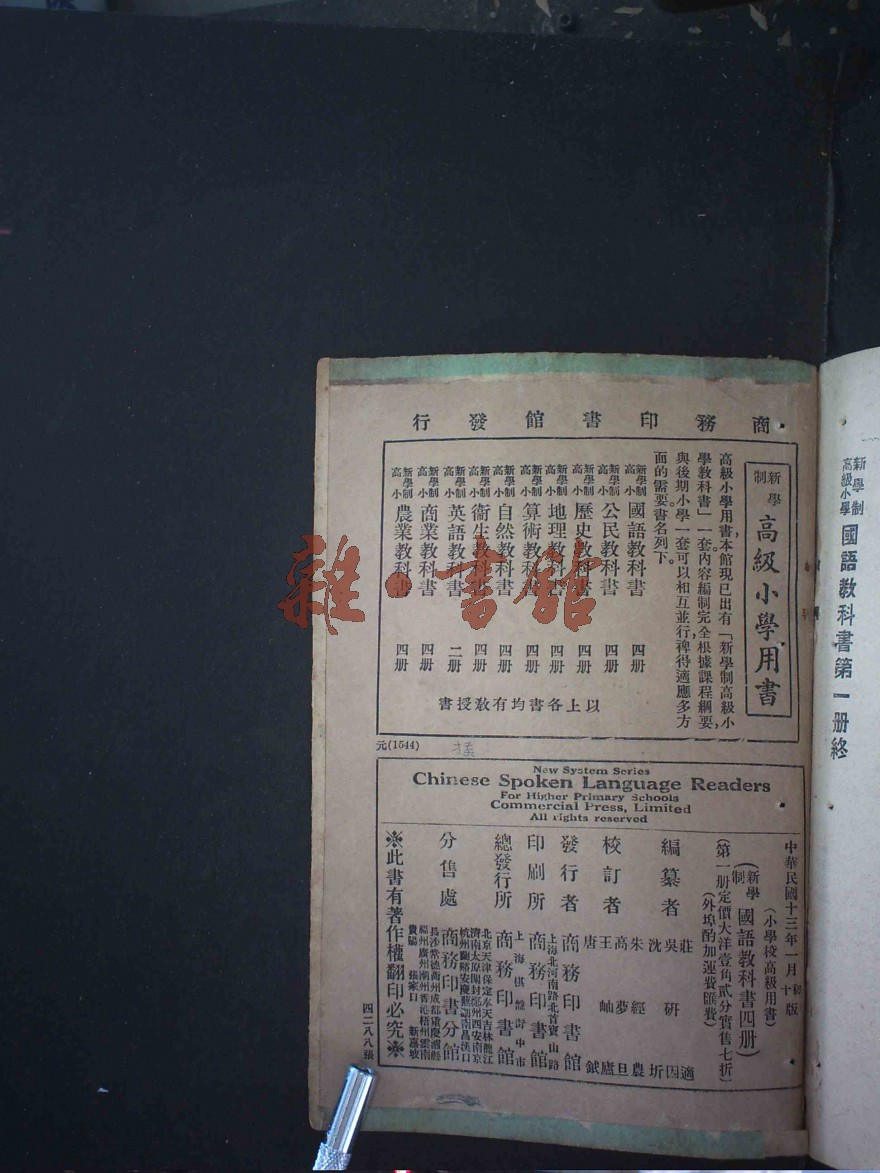 新學制
高級小學
國語教科書第一册終
商務印書館發行
新學制
高級小學用書
高級小學用書，本館現已出有「新學制高級小
學教科書」一套，內容編制完全根據課程綱要，
與後期小學一套可以相互並行，裨得適應多方
面的需要。書名列下。
新學制高小 國語教科書 四册
新學制高小 公民教科書 四册
新學制高小 歷史教科書 四册
新學制高小 地理教科書 四册
新學制高小 算術教科書 四册
新學制高小 自然教科書 四册
新學制高小 衞生教科書 四册
新學制高小 英語教科書 二册
新學制高小 商業教科書 四册
新學制高小 農業教科書 四册
以上各書均有教授書
元(1544)
New System Series
Chinese Spoken Language Readers
For Higher Primary Schools
Commercial Press, Limited
All rights reserved
中華民國十三年一月初十版
（小學校高級用書）
（新學制國語教科書四册）
（第一册定價大洋壹角貳分實售七折）
（外埠酌加運費匯費）
編纂者
莊適
吳研因
沈圻
校訂者
朱經農
高夢旦
王岫廬
唐鉞
發行者 商務印書館
印刷所 上海北河南路北首寶山路 商務印書館
總發行所 上海棋盤街中市 商務印書館
分售處 商務印書分館
北京天津保定奉天吉林龍江
濟南太原開封鄭州西安南京
杭州蘭谿安慶蕪湖南昌漢口
長沙常德衡州成都重慶瀘縣
福州廣州潮州香港梧州雲南
貴陽 張家口 新嘉坡
※此書有著作權翻印必究※
四二八八張
雜·書館